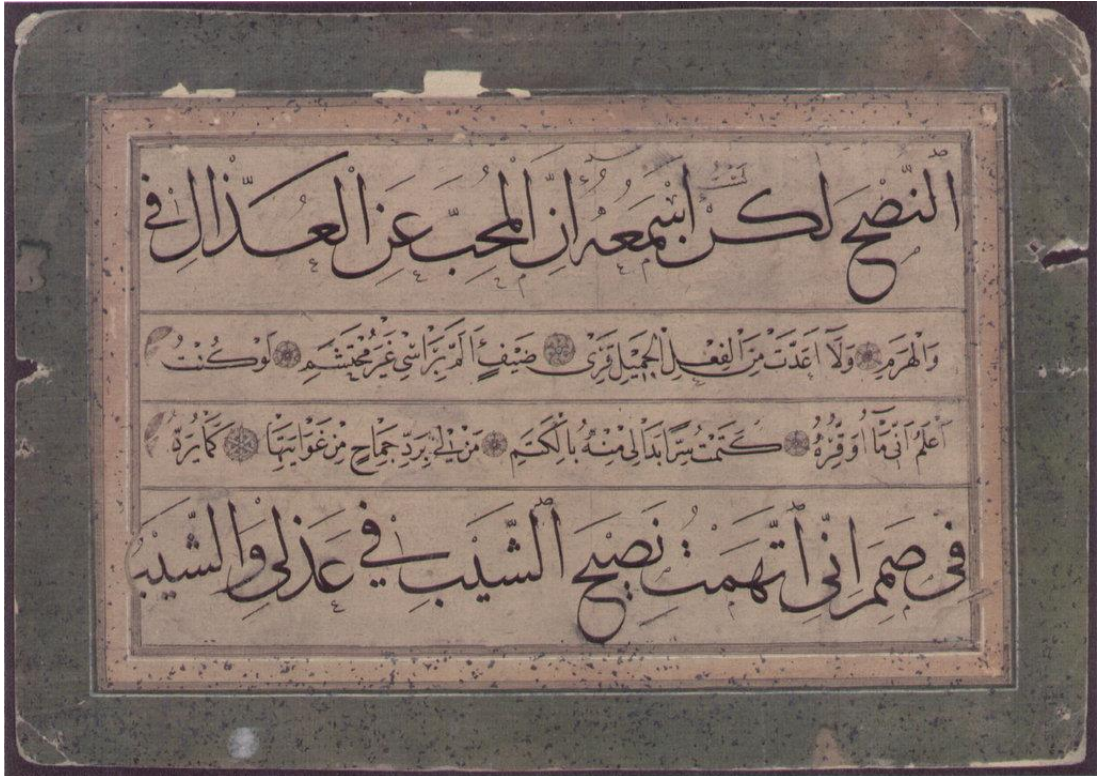 النُّصْحَ لٰكِنْ لَسْتُ اَسْمَعُهُ اِنَّ الْمُحِبَّ عَنِ الْعُذَّالِ فِي
وَالْهَرَمِ وَلَا اَعَدَّتْ مِنَ الْفِعْلِ الْجَمِيلِ قِرٰى ضَيْفٍ اَلَمَّ بِرَاْسِى غَيْرَ مُحْتَشَمِ لَوْ كُنْتُ
اَعْلَمُ اَنّى مَا اُوَقِّرُهُ كَتَمْتُ سِرًّا بَدَالِى مِنْهُ بِالْكَتَمِ مَنْ لِي بِرَدِّ جِمَاحٍ مِنْ غَوَايَتِهَا كَمَا يُرَدُّ
فِي صَمَمِ اِنّى اتَّهَمْتُ نَصِيحَ الشَّيْبِ فِي عَذَلِى وَالشَّيْبُ